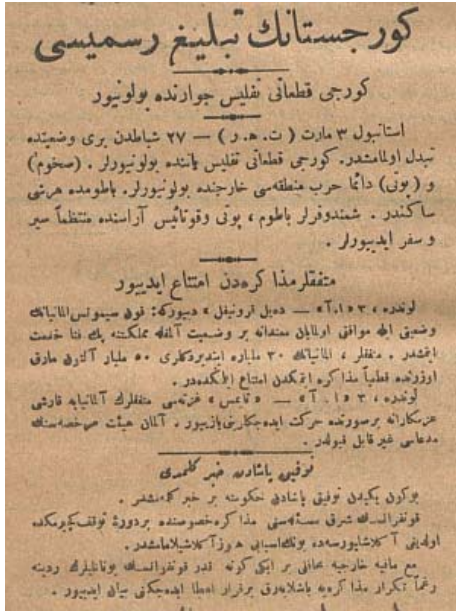 كورجستانك تبليغ رسميسى
كورجى قطعاتى تفليس جوارنده بولونيور
استانبول ٣ مارت ( ت. ه. ر ) — ٢٧ شباطدن برى وضعيتده
تبدل اولمامشدر. كورجى قطعاتى تفليس ياننده بولونيورلر. (صخوم)
و ( پوتى ) دائما حرب منطقه‌سى خارجنده بولونيورلر. باطومده هرشى
ساكندر. شمندوفرلر باطوم ، پوتى وقوتائيس آراسنده منتظماً سير
و سفر ايدييورلر.
متفقلر مذاكره‌دن امتناع ايدييور
لوندره ، ٣ «ا. آ» — «ديلى قرونيقل» دييوركه: فون سيمونس آلمانيانك
وضعيتى ايله موافق اولمايان بر وضعيت آلمقله مملكتنه پك فنا خدمت
ايتمشدر. متفقلر ، آلمانيانك ٣٠ ملياره اينديردكلرى ٥٠ مليار آلتون مارق
اوزرنده قطعياً مذاكره ايتمكدن امتناع ايتمكده‌در.
لوندره ، ٣ «ا. آ» — «تايمس» غزته‌سى متفقلرك آلمانيايه قارشى
عزمكارانه برصورتده حركت ايده‌جكلرينى يازييور. آلمان هيئت مرخصه‌سنك
مدعاسى غير قابل قبولدر.
توفيق پاشادن خبر كلمدى
بوكون يكيدن توفيق پاشادن حكومته بر خبر كلمه‌مشدر.
قونفرانسك شرق مسئله‌سنى مذاكره خصوصنده بر دورۀ توقف كچيرمكده
اولديغى آكلاشيليورسه‌ده بونك اسبابى هنوز آكلاشيلامامشدر.
مع مافيه خارجيه محافلى بر ايكى كونه قدر قونفرانسك يونانيلرك ردينه
رغماً تكرار مذاكره‌يه باشلايه‌رق برقرار اعطا ايده‌جكنى بيان ايدييور.